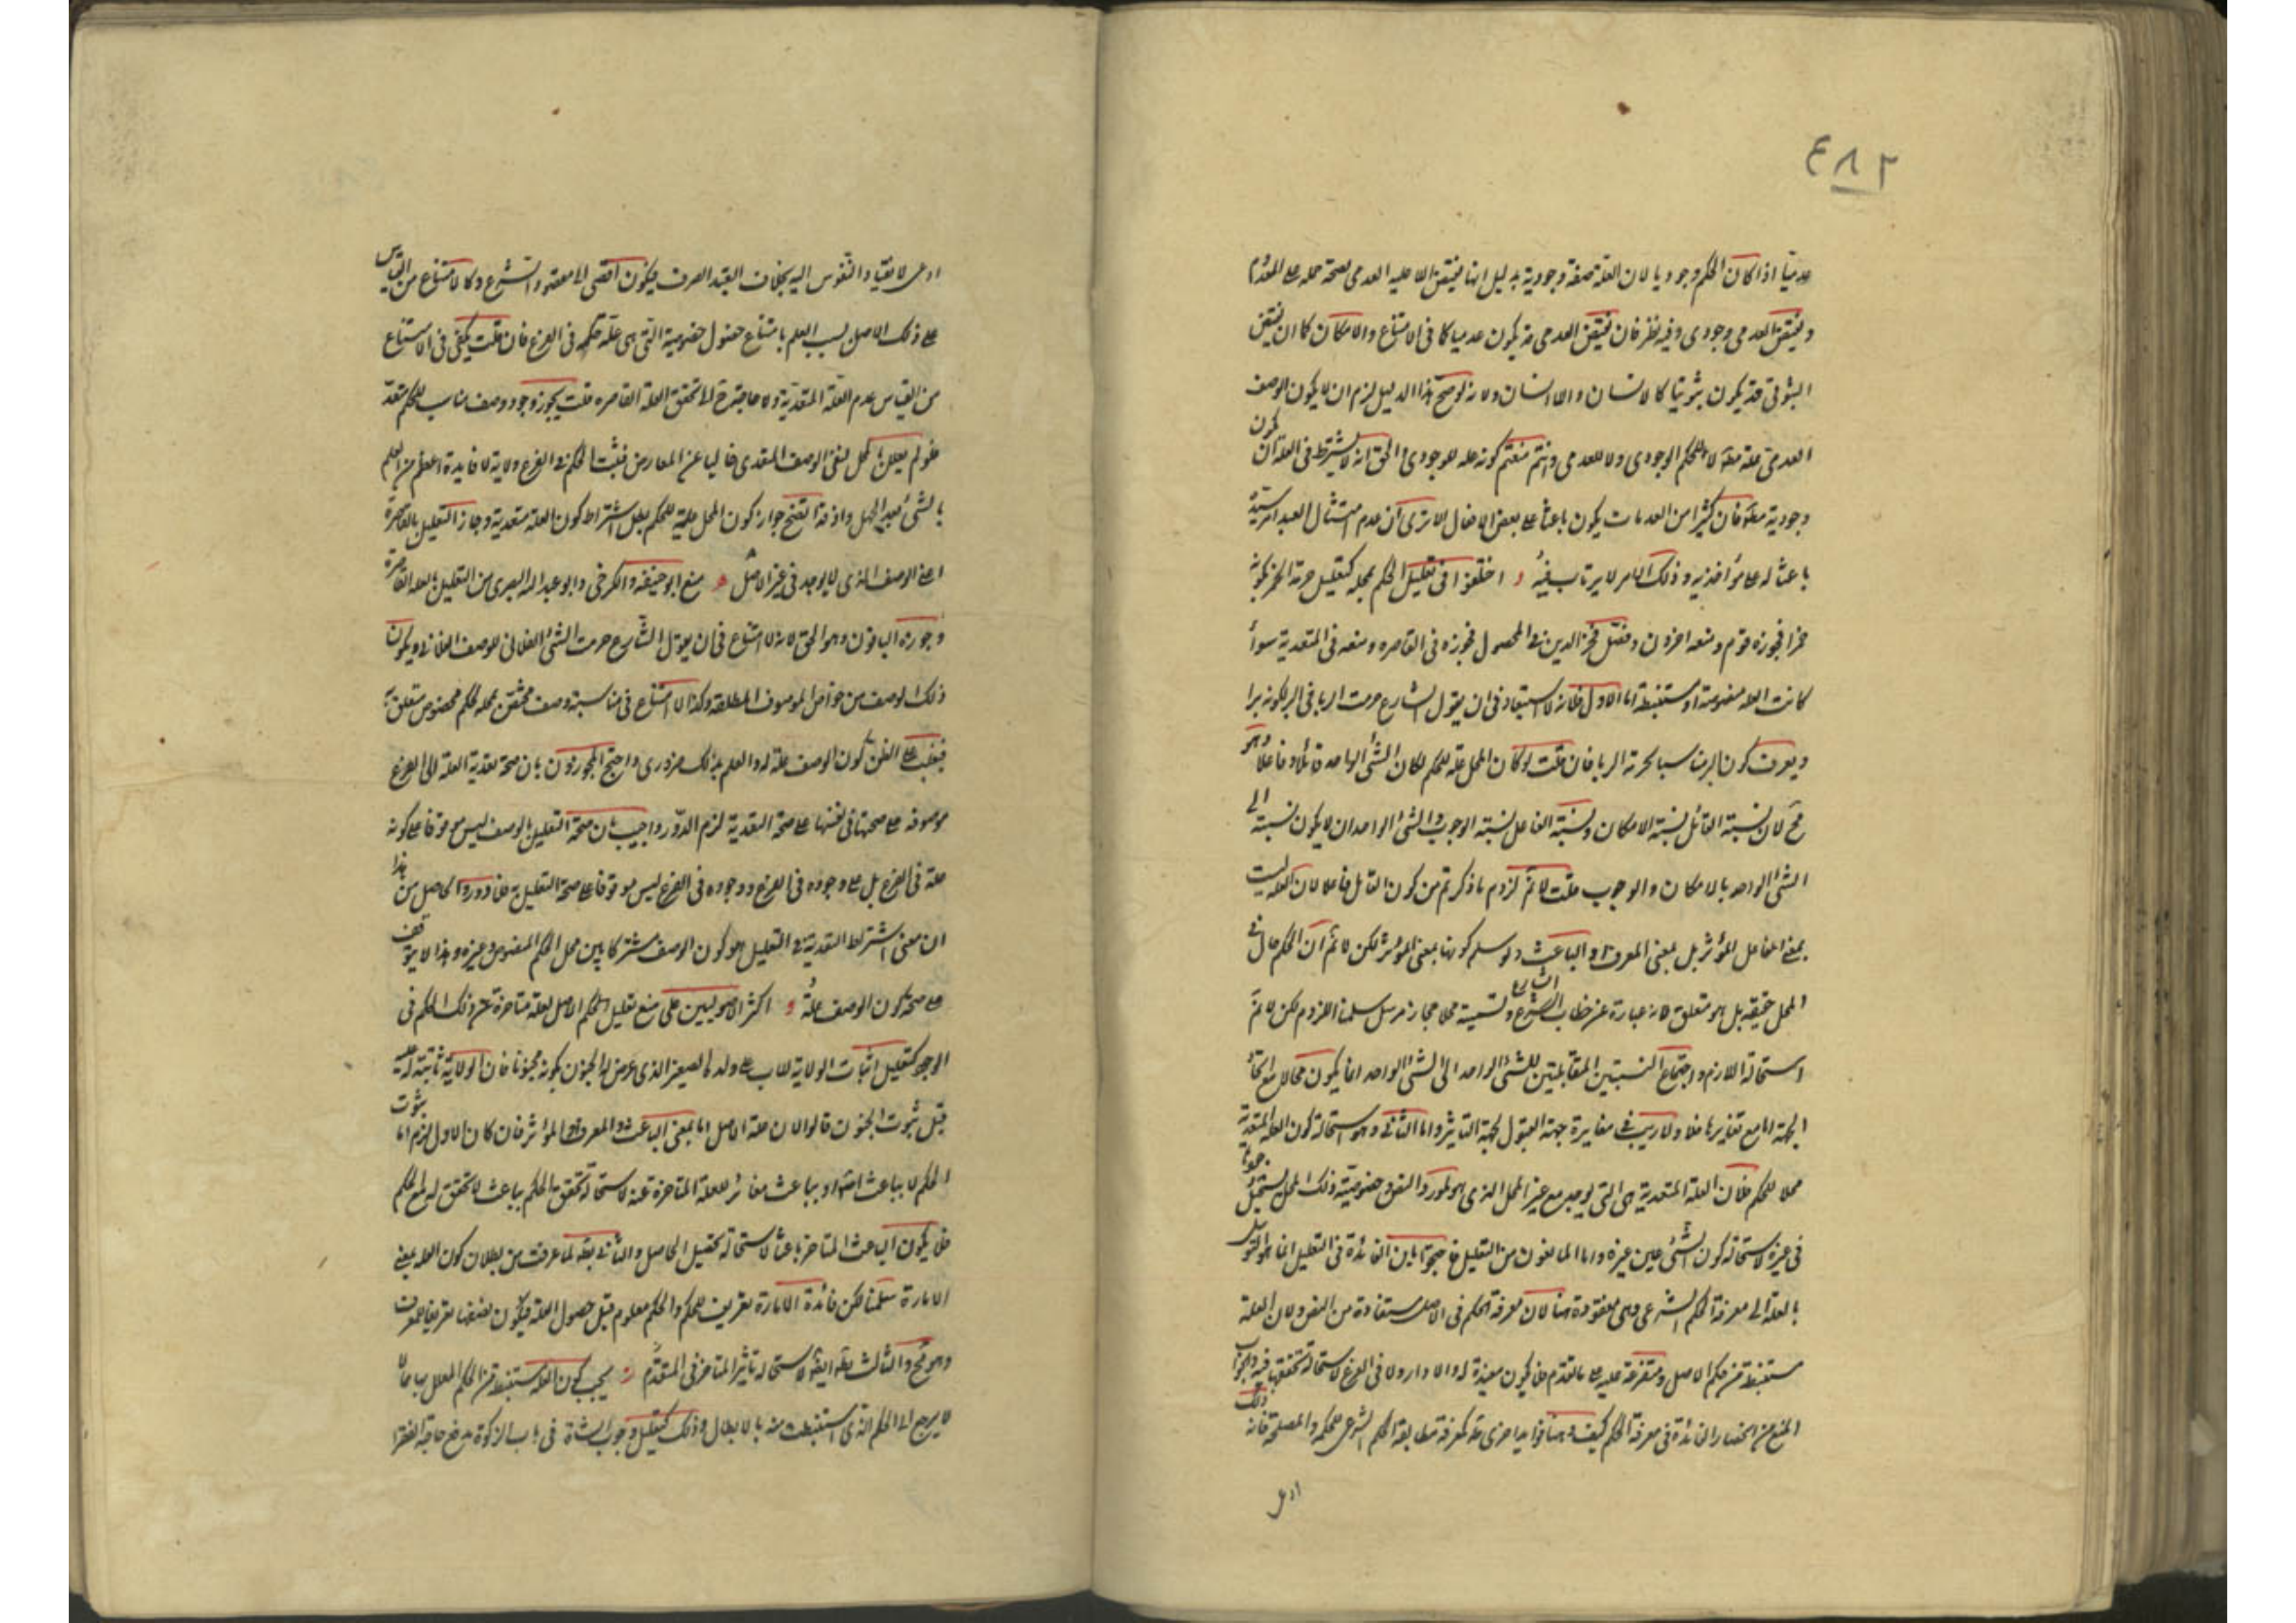 ٤٨٢
عدميا اذا كان الحكم وجوديا لان العلة صفة وجودية بدليل انها نقيض اللاعلية العدمى لصحة حمله على المعدوم
ونقيض العدمى وجودى وفيه نظر فان نقيض العدمى قد يكون عدميا كما فى الامتناع والامكان كما ان نقيض
الثبوتى قد يكون ثبوتيا كالانسان واللاانسان ولانه لو صح هذا الدليل لزم ان لا يكون الوصف
العدمى علة مطلقا لا للحكم الوجودى ولا للعدمى وانتم منعتم كونه علة للوجودى والحق انه لا يشترط فى العلة ان تكون
وجودية مطلقا فان كثيرا من العدمات يكون باعثا على بعض الافعال الا ترى ان عدم امتثال العبد امر سيده
باعثا له على مؤاخذته وذلك الامر لا يرتاب فيه و اختلفوا فى تعليل الحكم بمحله كتعليل حرمة الخمر بكونه
خمرا فجوزه قوم ومنعه اخرون وفصل فخر الدين فى المحصول فجوزه فى القاصره ومنعه فى المتعدية سواء
كانت العله منصوصة او مستنبطة اما الاول فلانه لا استبعاد فى ان يقول الشارع حرمت الربا فى البر لكونه برا
ويعرف كون البر مناسبا لحرمة الربا فان قلت لو كان المحل علة للحكم لكان الشئ الواحد قابلا وفاعلا وهو
مح لان نسبة القابل نسبة الامكان ونسبة الفاعل نسبة الوجوب والشئ الواحد ان لا يكون نسبته الى
الشئ الواحد بالامكان والوجوب قلت لا نم لزوم ما ذكرتم من كون القابل فاعلا لان العلة ليست
بمعنى الفاعل المؤثر بل بمعنى المعرف او الباعث ولو سلم كونها بمعنى المؤثر لكن لا نم ان الحكم حال فى
المحل حقيقة بل هو متعلق لانه عبارة عن خطاب الشارع وتسمية محلا مجاز مرسل سلمنا اللزوم لكن لا نم
استحالة اللازم واجتماع النسبتين المتقابلتين للشئ الواحد الى الشئ الواحد انما يكون محالا مع اتحاد
الجهة اما مع تغايرها فلا ولا ريب فى مغايرة جهة القبول لجهة التاثير واما الثانى وهو استحالة كون العلة المتعدية
محلا للحكم فلان العلة المتعدية هى التى توجد مع غير المحل الذى هو مورد النص وخصوصية ذلك المحل يستحيل حصولها
فى غيره لاستحالة كون الشئ عين غيره واما المانعون من التعليل فاحتجوا بان الفائدة فى التعليل انما هو التوسل
بالعلة الى معرفة الحكم الشرعى وهى مفقودة هنا لان معرفة الحكم فى الاصل مستفادة من النص ولان العلة
مستنبطة من حكم الاصل ومتفرعة عليه فلا يكون معيدة له والا دار ولا فى الفرع لاستحالة تحققها فيه والجواب
المنع من انحصار الفائدة فى معرفة الحكم كيف وهنا فوايد اخرى ككمعرفة مطابقة الحكم الشرعى للحكمة والمصلحة فان ذلك
ادعى
ادعى لانقياد النفوس اليه بخلاف التعبد الصرف فيكون افضى الى مقصود الشرع وكالامتناع من القياس
على ذلك الاصل لسبب العلم بامتناع حصول خصوصية التى هى علة حكمه فى الفرع فان قلت يكفى فى الامتناع
من القياس عدم العلة المتعدية ولا حاجة الى تحقق العلة القاصره قلت يجوز وجود وصف مناسب للحكم متعد
فلو لم يعلل بمحل لبقى الوصف المتعدى خاليا عن المعارض فيثبت الحكم فى الفرع ولانه لا فايدة اعظم من العلم
بالشئ بعد الجهل واذ قد اتضح جواز كون المحل علة للحكم بطل اشتراط كون العلة متعدية وجاز التعليل بالقاصرة
اعنى الوصف الذى لا يوجد فى غير الاصل منع ابو حنيفه والكرخى وابو عبد الله البصرى من التعليل بالعلة القاصرة
وجوزه الباقون وهو الحق لانه لا امتناع فى ان يقول الشارع حرمت الشئ الفلانى للوصف الفلانى ويكون
ذلك الوصف من خواص الموصوف المطلقة وكذا لا امتناع فى مناسبة وصف مختص بمحله لحكم مخصوص متعلق به
فيغلب على الظن كون الوصف علة له والعلم بذلك ضرورى واحتج المجوزون بان صحة تعدية العلة الى الفرع
موقوفة على صحتها فى نفسها على صحة التعدية لزم الدور واجيب بان صحة التعليل بالوصف ليس موقوفا على كونه
علة فى الفرع بل على وجوده فى الفرع ووجوده فى الفرع ليس موقوفا على صحة التعليل به فلا دور والحاصل من هذا
ان معنى اشتراط التعدية فى التعليل هو كون الوصف مشتركا بين محل الحكم المنصوص وغيره وهذا لا يتوقف
على صحة كون الوصف علة و اكثر الاصوليين على منع تعليل الحكم الاصل بعلة متاخرة عن ذلك الحكم فى
الوجود كتعليل اثبات الولاية للاب على ولده الصغير الذى عرض له الجنون بكونه مجنونا فان الولاية ثابتة له عليه
قبل ثبوت الجنون قالوا لان علة الاصل اما بمعنى الباعث او المعرف او المؤثر فان كان الاول لزم اما ثبوت
الحكم لا بباعث اصلا او بباعث مغاير للعلة المتاخرة عنه لاستحالة تحقق الحكم بباعث لا تحقق له مع الحكم
فلا يكون الباعث المتاخر باعثا لاستحالة تحصيل الحاصل والثانى بط لما عرفت من بطلان كون العلة بمعنى
الامارة سلمنا لكن فائدة الامارة تعريف الحكم والحكم معلوم قبل حصول العلة فيكون نصبها تعريفا للمعرف
وهو مح والثالث بط ايضا لاستحالة تاثير المتاخر فى المتقدم يجب كون العلة المستنبطة من الحكم المعلل بها مما
لا يرجع الى الحكم الذى استنبطت منه بالابطال وذلك كتعليل وجوب الشاة فى باب الزكوة بدفع حاجة الفقرا